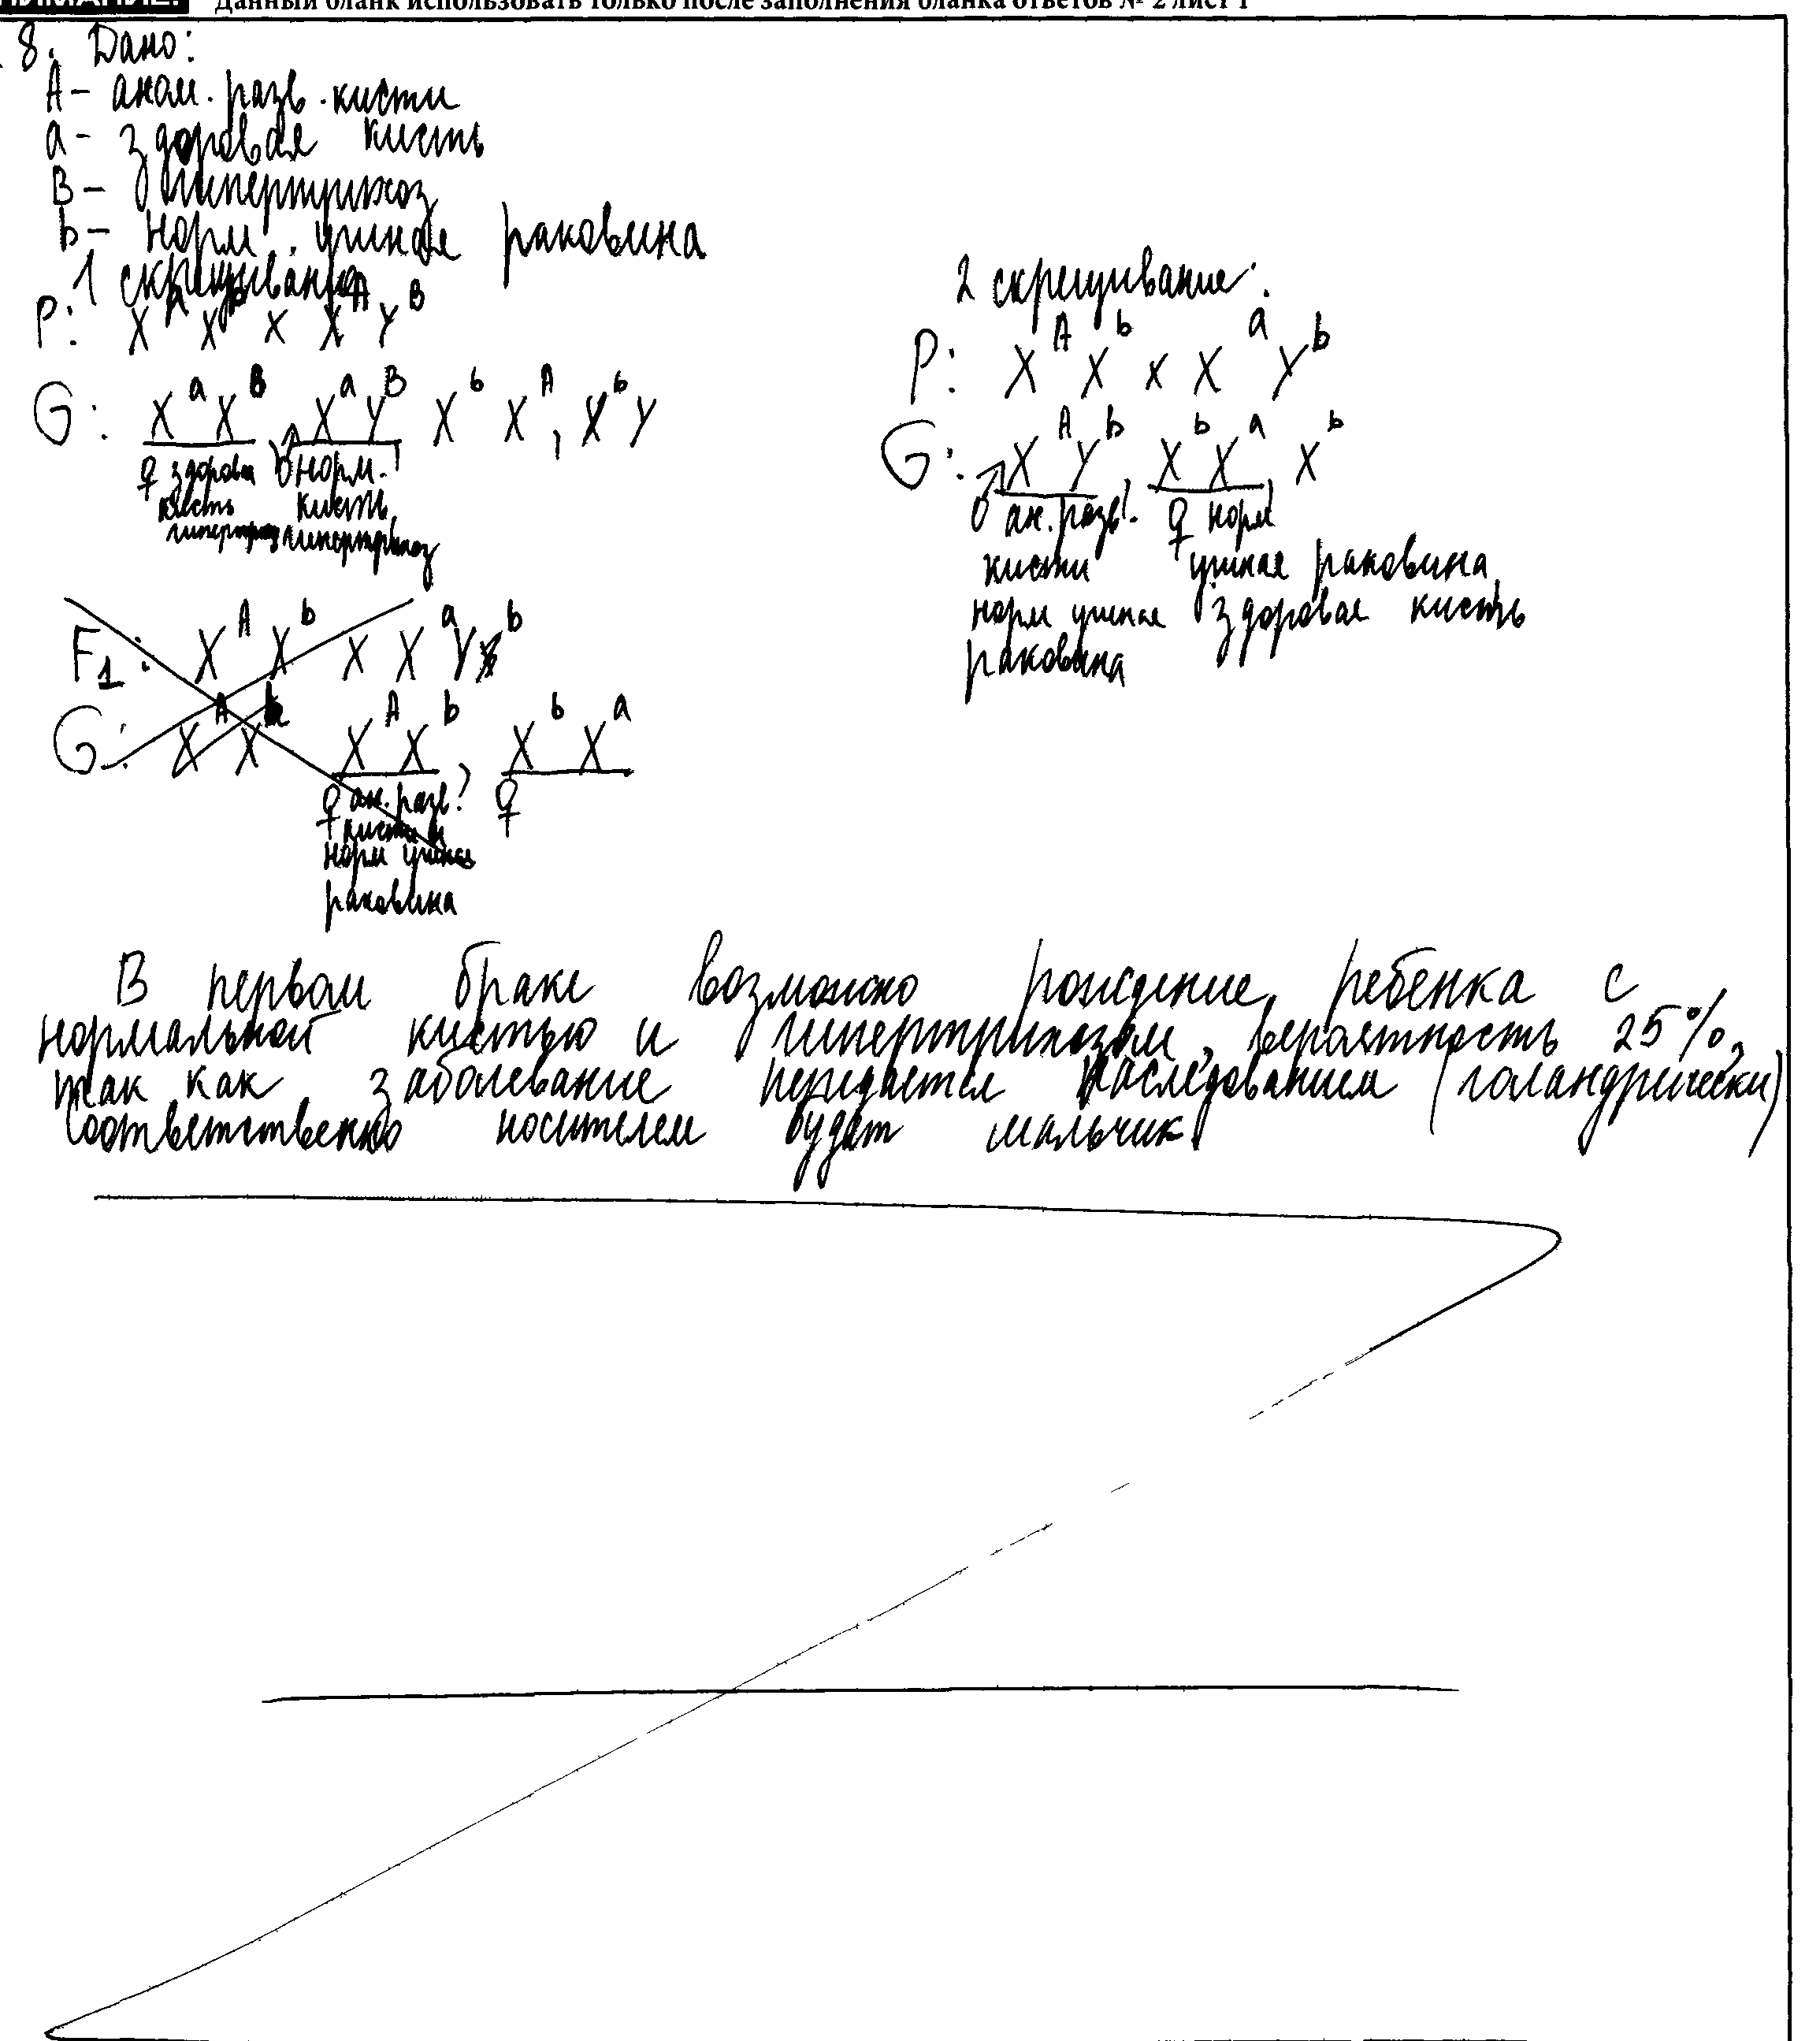 Данный бланк использовать только после заполнения бланка ответов № 2 лист 1
8. Дано:
А - аном. разв. кисти
а - здоровая кисть
В - гипертрихоз
b - норм. ушная раковина
1 скрещивание
P: X X x X^A Y^B
G: X^a X^B, X^a Y^B X^b X^A, X^b Y
♀ здоровая кисть гипертрихоз
♂ норм. кисть, гипертрихоз
F1: X^A X^b x X^a Y^b
G: X^A X X^A X^b, X^b X^a
♀ ан. разв. кисти и норм ушная раковина
♀
2 скрещивание:
P: X^A X^b x X^a Y^b
G: X^A Y^b, X^b X^a, X^b
♂ ан. разв. кисти норм ушная раковина
♀ норм ушная раковина, здоровая кисть
В первом браке возможно рождение ребенка с
нормальной кистью и гипертрихозом, вероятность 25%,
так как заболевание передается наследованием (голандрически)
соответственно носителем будет мальчик.